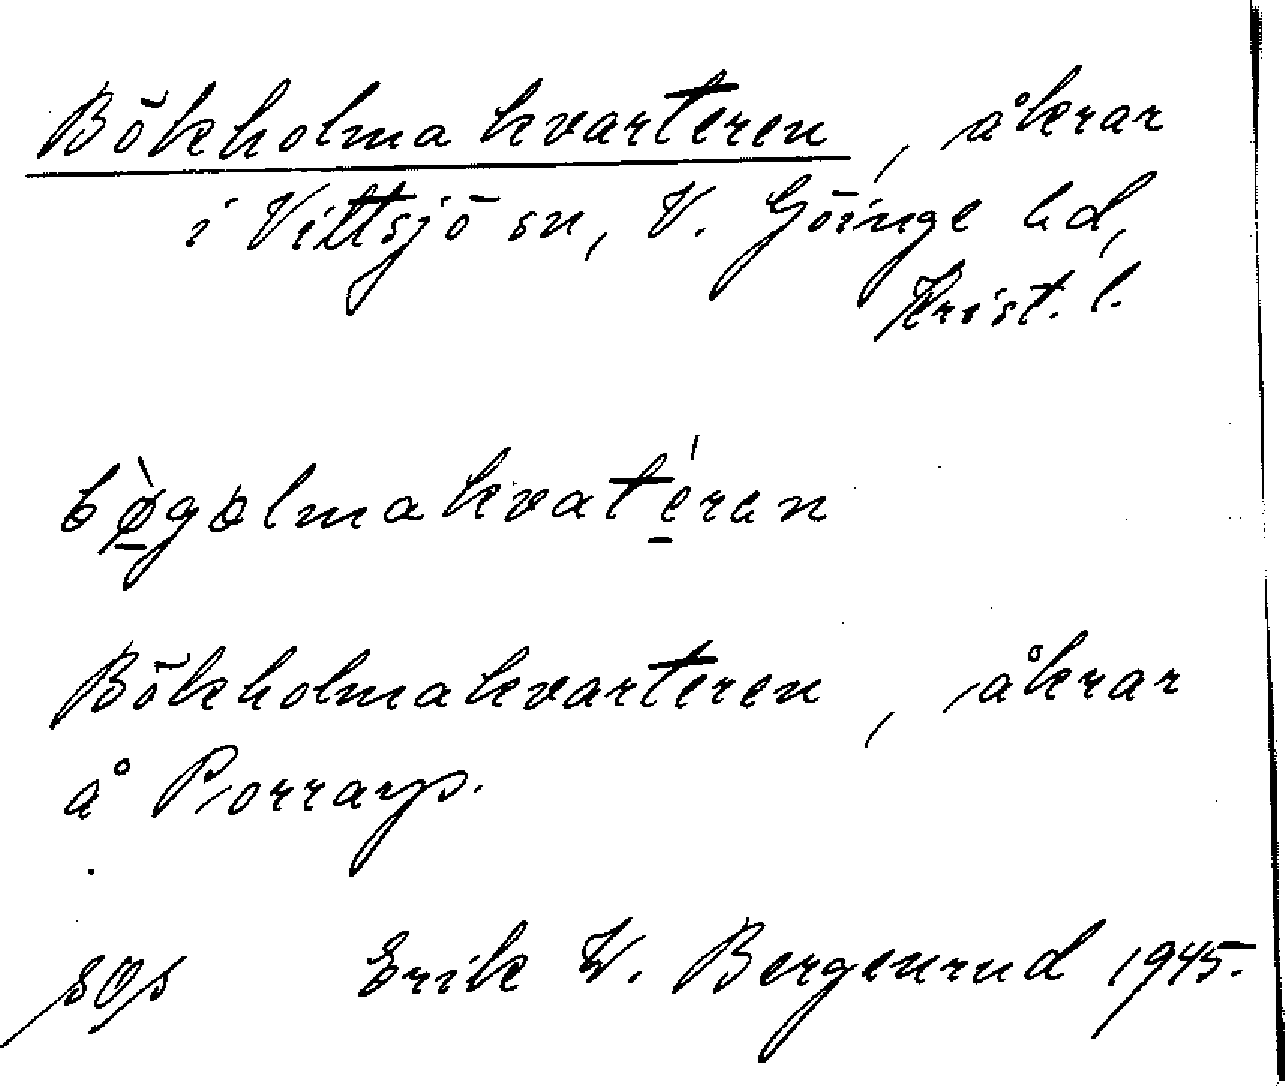 Bökholmakvarteren, åkrar
i Vittsjö sn, V. Göinge hd,
Krist. l.
bø̀gəlmakvatéran
Bökholmakvarteren, åkrar
å Porrarp.
SOS Erik W. Bergenrud 1945.